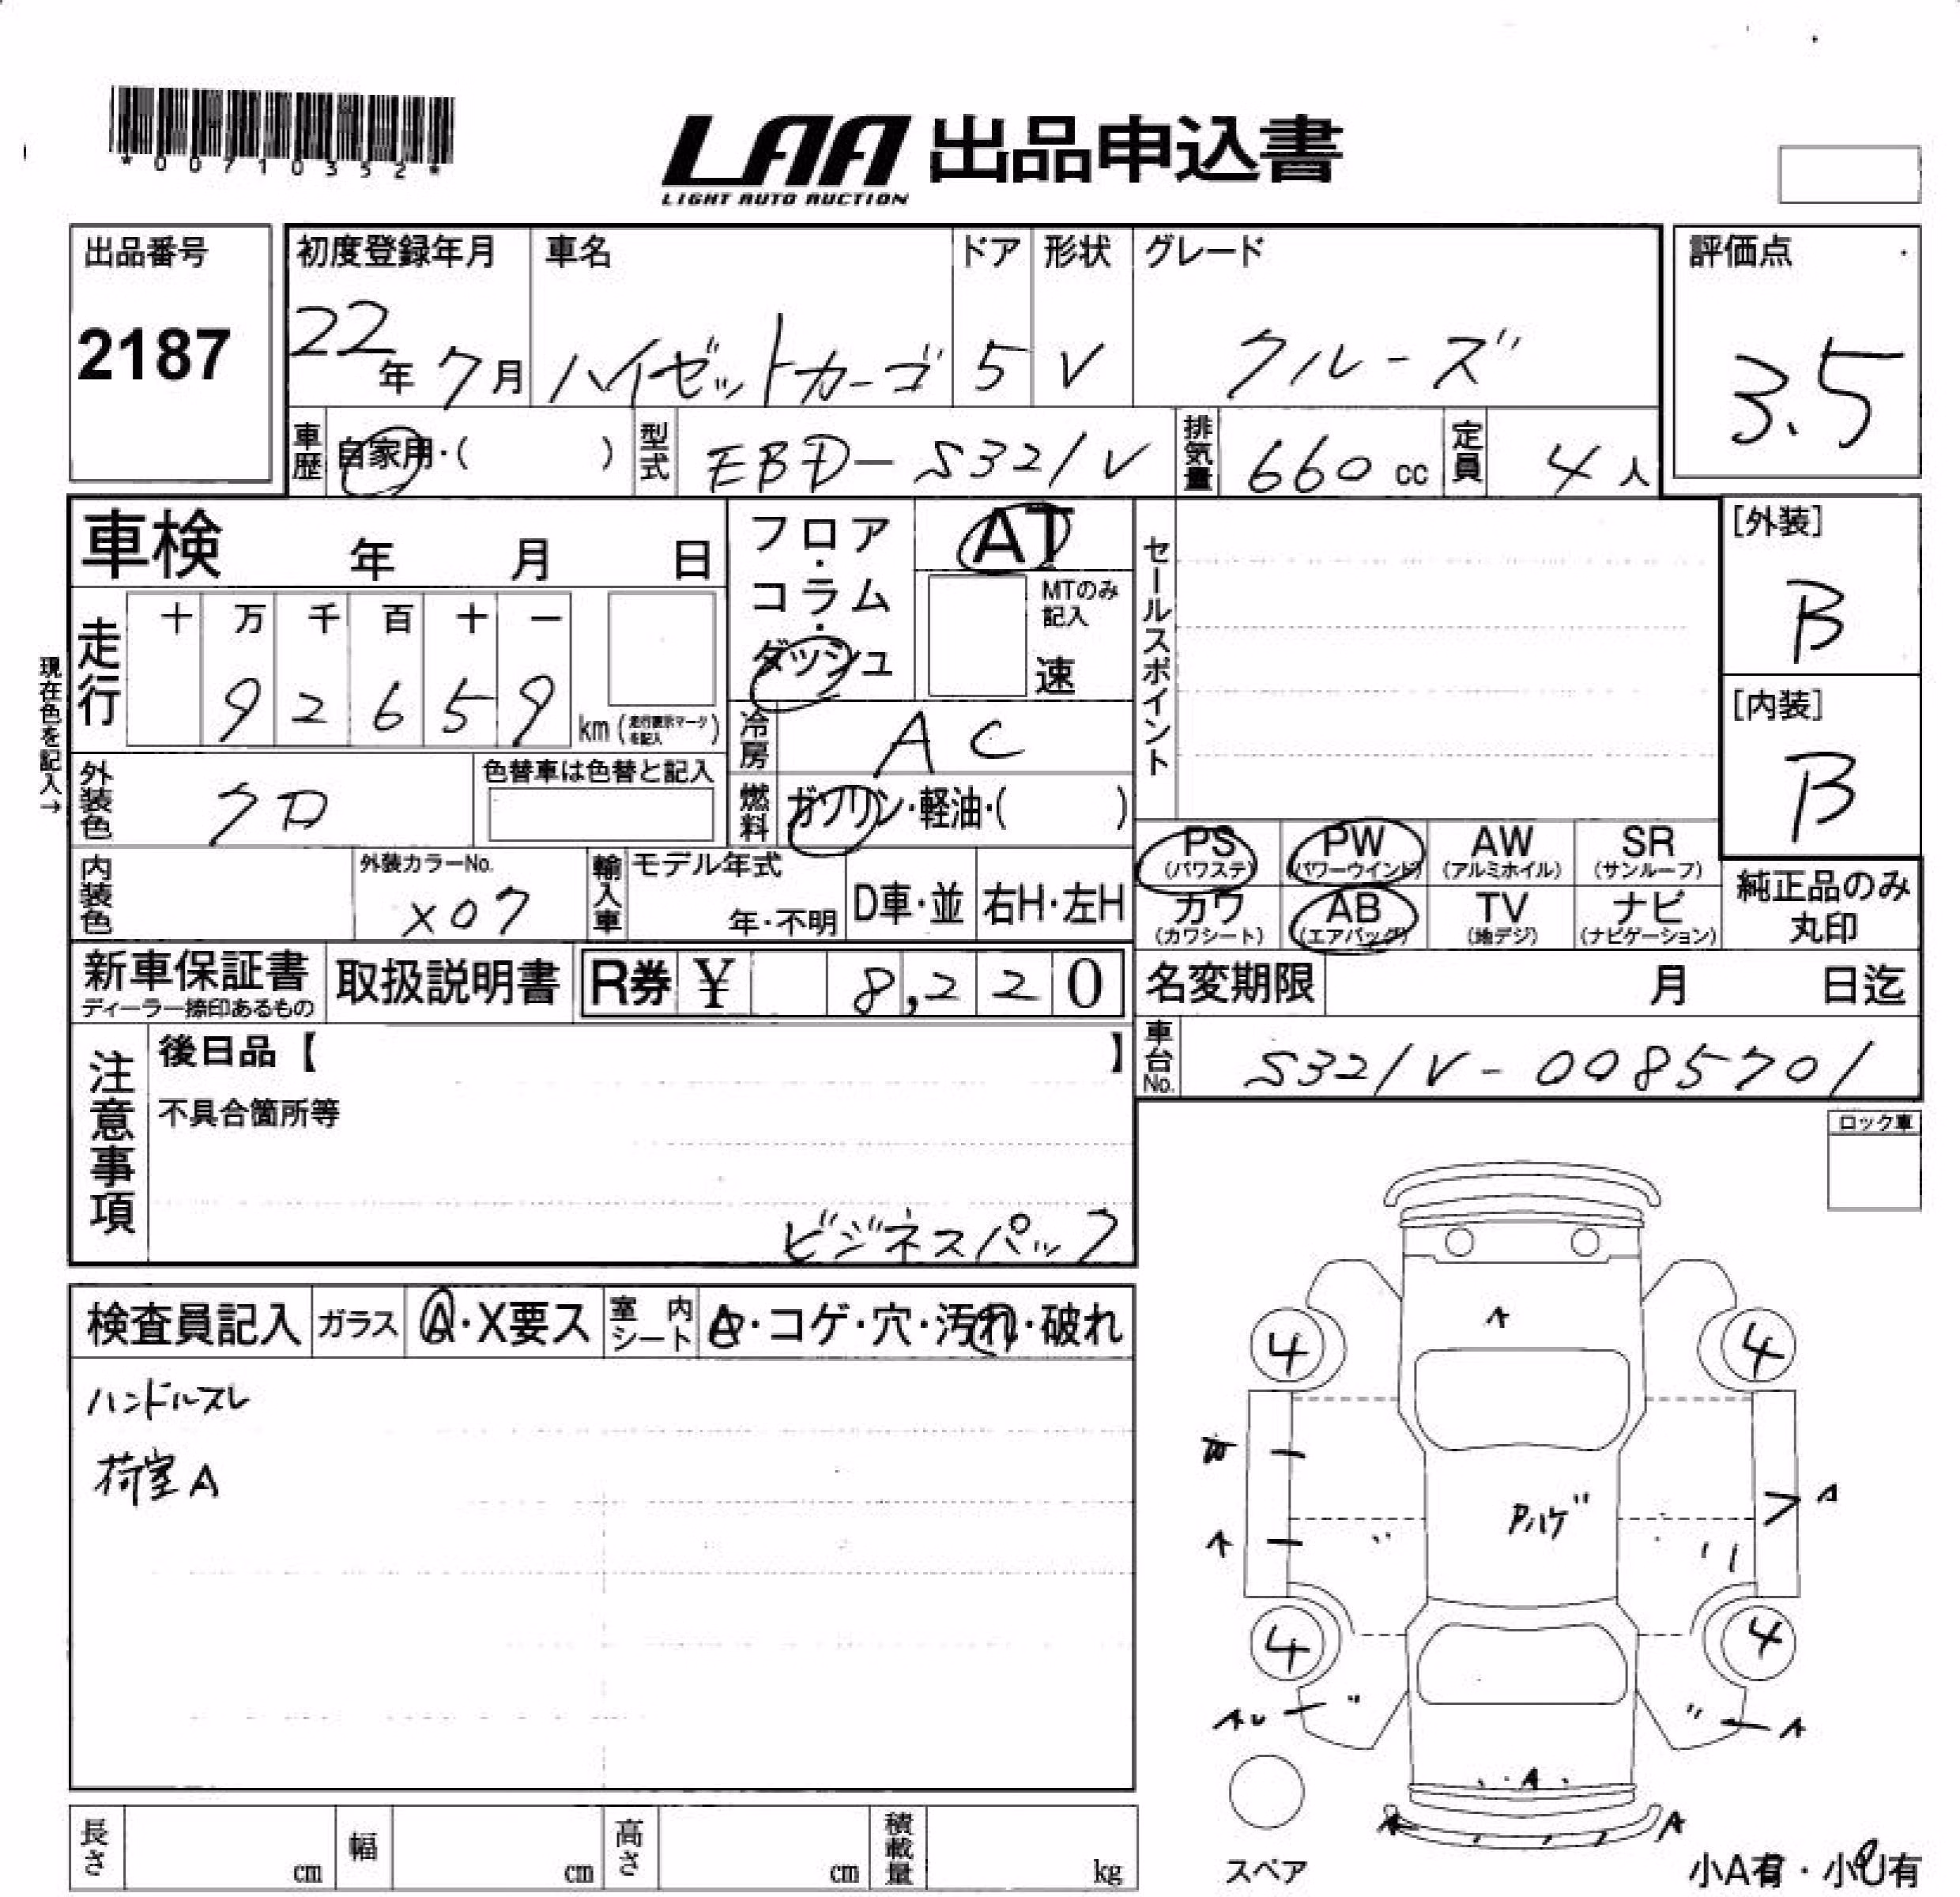 *00710352*
LAA 出品申込書
LIGHT AUTO AUCTION
出品番号
2187
初度登録年月
22年7月
車名
ハイゼットカーゴ
ドア
5
形状
V
グレード
クルーズ
評価点
3.5
車歴
自家用・( )
型式
EBD-S321V
排気量
660 cc
定員
4人
車検 年 月 日
フロア・コラム・ダッシュ
AT
MTのみ記入
速
セールスポイント
[外装]
B
[内装]
B
現在色を記入→
走行
十 万 千 百 十 一
9 2 6 5 9
km (走行表示マークを記入)
冷房
AC
外装色
クロ
色替車は色替と記入
燃料
ガソリン・軽油・( )
内装色
外装カラーNo.
X07
輸入車
モデル年式
年・不明
D車・並
右H・左H
PS (パワステ)
PW (パワーウインド)
AW (アルミホイル)
SR (サンルーフ)
カワ (カワシート)
AB (エアバッグ)
TV (地デジ)
ナビ (ナビゲーション)
純正品のみ
丸印
新車保証書
ディーラー捺印あるもの
取扱説明書
R券 ¥ 8,220
名変期限 月 日迄
車台No.
S321V-0085701
注意事項
後日品【 】
不具合箇所等
ビジネスパック
ロック車
検査員記入
ガラス
A・X要ス
室内シート
A・コゲ・穴・汚れ・破れ
ハンドルスレ
荷室A
A
4
4
A
A
Pハゲ
4
4
A
A
A
スペア
長さ cm
幅 cm
高さ cm
積載量 kg
小A有・小U有